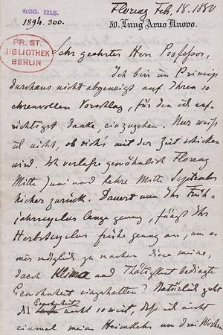 acc. ms.
1894. 300.
Florenz Feb 18. 1880
50. Lung' Arno Nuovo.
PR. ST.
BIBLIOTHEK
BERLIN
Sehr geehrter Herr Professor,
Ich bin im Princip
durchaus nicht abgeneigt auf Ihren so
ehrenvollen Vorschlag, für den ich auf-
richtigst danke, einzugehen. Nur weiss
ich nicht, ob sich's mit der Zeit schicken
wird. Ich verlasse gewöhnlich Florenz
Mitte Juni und kehre Mitte September
hieher zurück. Dauert nun Ihr Früh-
jahrscyclus lange genug, fängt Ihr
Herbstcyclus früh genug an, um es
mir möglich zu machen die meine,
durch Klima und Thätigkeit bedingte
Gewohnheit einzuhalten? Natürlich geht
nicht so weit, dass ich nicht
einmal meine Heimkehr um